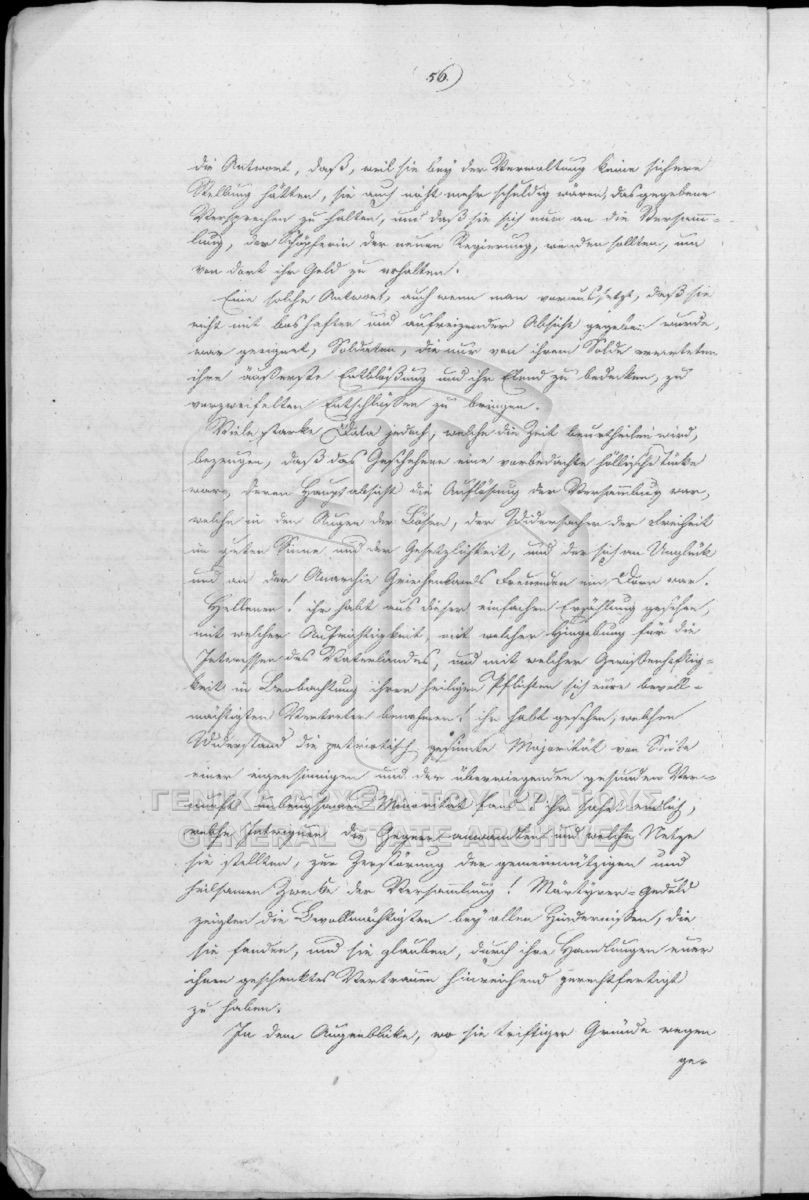 56.)
die Antwort, daß, weil sie bey der Verwaltung keine sichere
Stellung hätten, sie auch nicht mehr schuldig wären, das gegebene
Versprechen zu halten, und daß sie sich nun an die Versamm-
lung, der Schöpferin der neuen Regierung, wenden sollten, um
von dort ihr Geld zu erhalten.
Eine solche Antwort, auch wenn man voraussetzt, daß sie
nicht mit boshafter und aufreizender Absicht gegeben wurde,
war geeignet, Soldaten, die nur von ihrem Solde erwarteten
ihre äußerste Entblößung und ihr Elend zu bedecken, zu
verzweifelten Entschlüssen zu bringen.
Viele starke Data jedoch, welche die Zeit beurtheilen wird,
bezeugen, daß das Geschehene eine vorbedachte höllische Tücke
war, deren Hauptabsicht die Auflösung der Versammlung war,
welche in den Augen der Bösen, der Widersacher der Freiheit
im guten Sinne und der Gesetzlichkeit, und der sich am Unglück
und an der Anarchie Griechenlands Freuenden ein Dorn war.
Hellenen! ihr habt aus dieser einfachen Erzählung gesehen,
mit welcher Aufrichtigkeit, mit welcher Hingebung für die
Interessen des Vaterlandes, und mit welcher Gewissenhaftig-
keit in Beobachtung ihrer heiligen Pflichten sich eure bevoll-
mächtigten Vertreter benahmen! ihr habt gesehen, welchen
Widerstand die patriotisch gesinnte Majorität von Seite
einer eigensinnigen und der überwiegenden gesunden Ver-
nunft unbeugsamen Minorität fand! ihr sahet endlich,
ΓΕΝΙΚΑ ΑΡΧΕΙΑ ΤΟΥ ΚΡΑΤΟΥΣ
welche Intriguen die Gegner anwandten und welche Netze
GENERAL STATE ARCHIVES
sie stellten, zur Zerstörung der gemeinnützigen und
heilsamen Zwecke der Versammlung! Märtyrer-Geduld
zeigten die Bevollmächtigten bey allen Hindernissen, die
sie fanden, und sie glauben, durch ihre Handlungen euer
ihnen geschenktes Vertrauen hinreichend gerechtfertigt
zu haben.
In dem Augenblicke, wo sie triftiger Gründe wegen
ge-